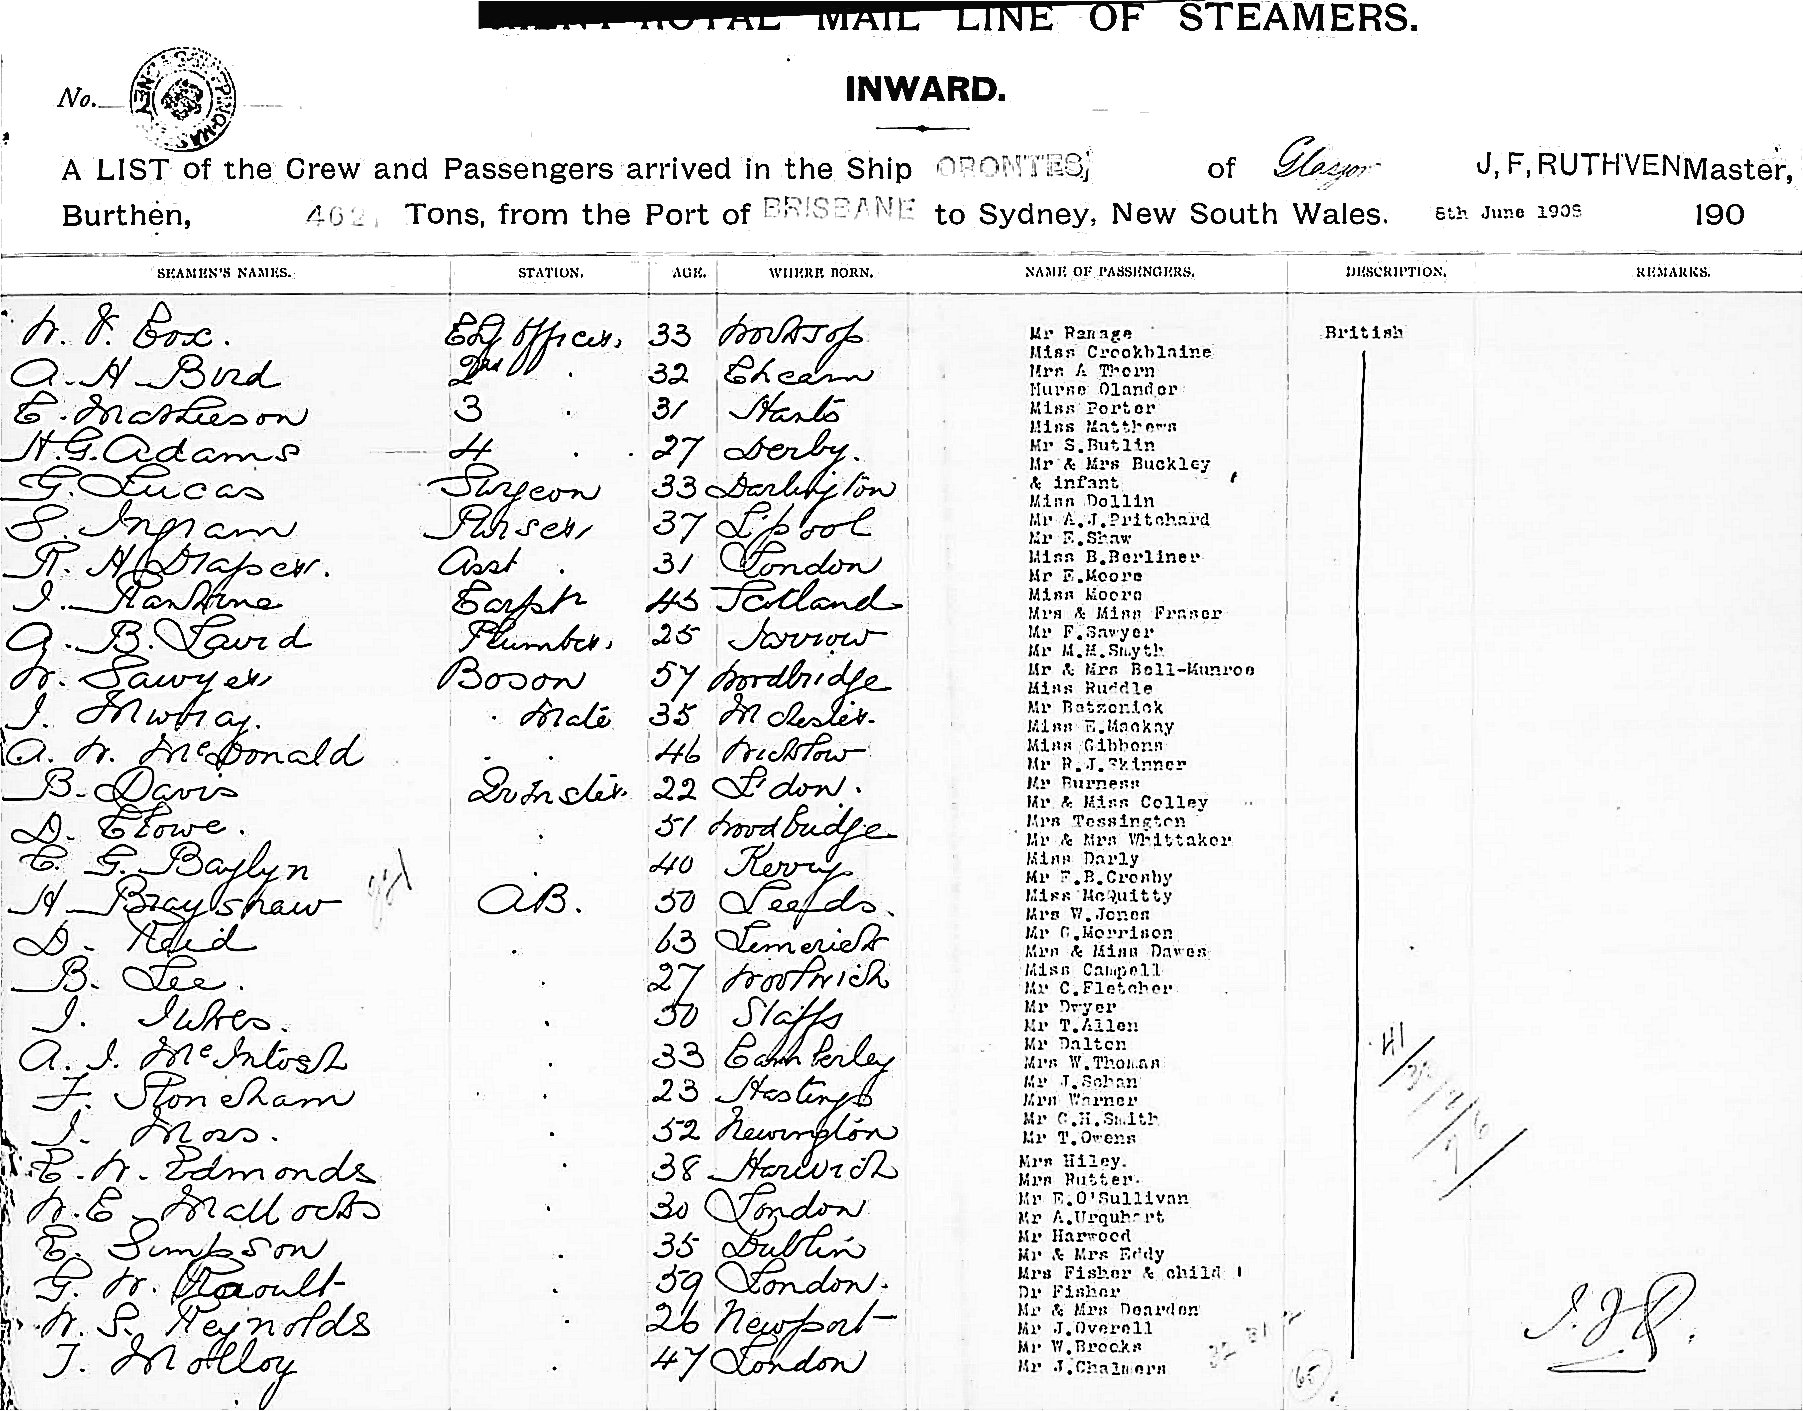 ROYAL MAIL LINE OF STEAMERS.
INWARD.
No.
A LIST of the Crew and Passengers arrived in the Ship ORONTES, of Glasgow J, F, RUTHVEN Master,
Burthen, Tons, from the Port of BRISBANE to Sydney, New South Wales. June 190
SEAMEN'S NAMES. STATION. AGE. WHERE BORN. NAME OF PASSENGERS. DESCRIPTION. REMARKS.
W. V. Cox. Officer. 33 Worksop
A. H Bird 2nd 32 Cheam
E. Mathieson 3 31 Hants
H. G. Adams 4 27 Derby.
G. Lucas Surgeon 33 Darlington
S. Ingram Purser 37 L'pool
R. H Draper. Asst 31 London
J. Rankine Carptr 45 Scotland
A. B. Laird Plumber. 25 Jarrow
W. Sawyer Boson 57 Woodbridge
J. Murray. Mate 35 Mchester.
A. W. McDonald 46 Wicklow
B. Davis Qrmster. 22 L'don.
D. Crowe. 51 Woodbridge
C. G. Baylyn 40 Kerry
H Brayshaw AB. 50 Leeds.
D. Reid 63 Limerick
B. Lee. 27 Woolwich
J. Jukes. 30 Staffs
A. J. McIntosh 33 Camberley
F. Stoneham 23 Hastings
J. Moss. 52 Newington
E. W. Edmonds 38 Harwich
W. E. Mallocks 30 London
E. Simpson 35 Dublin
G. W. Raoult 59 London.
W. S. Reynolds 26 Newport
J. Molloy 47 London
Mr Ranage British
Miss Crookblaine
Mrs A Thorn
Nurse Olander
Miss Porter
Miss Matthews
Mr S.Butlin
Mr & Mrs Buckley
& infant
Miss Dollin
Mr A.J.Pritchard
Mr E.Shaw
Miss B.Berliner
Mr E.Moore
Miss Moore
Mrs & Miss Fraser
Mr F.Sawyer
Mr M.M.Smyth
Mr & Mrs Bell-Munroe
Miss Ruddle
Mr Batzonick
Miss E.Mackay
Miss Gibbons
Mr R.J.Skinner
Mr Burness
Mr & Miss Colley
Mrs Tessington
Mr & Mrs Whittaker
Miss Darly
Mr F.B.Crosby
Miss McQuitty
Mrs W.Jones
Mr G.Morrison
Mrs & Miss Dawes
Miss Campell
Mr C.Fletcher
Mr Dwyer
Mr T.Allen
Mr Dalton
Mrs W.Thomas
Mr J.Schan
Mrs Warner
Mr C.H.Smith
Mr T.Owens
Mrs Hiley.
Mrs Rutter.
Mr E.O'Sullivan
Mr A.Urquhart
Mr Harwood
Mr & Mrs Eddy
Mrs Fisher & child
Dr Fisher
Mr & Mrs Dearden
Mr J.Overell
Mr W.Brooks
Mr J.Chalmers
41